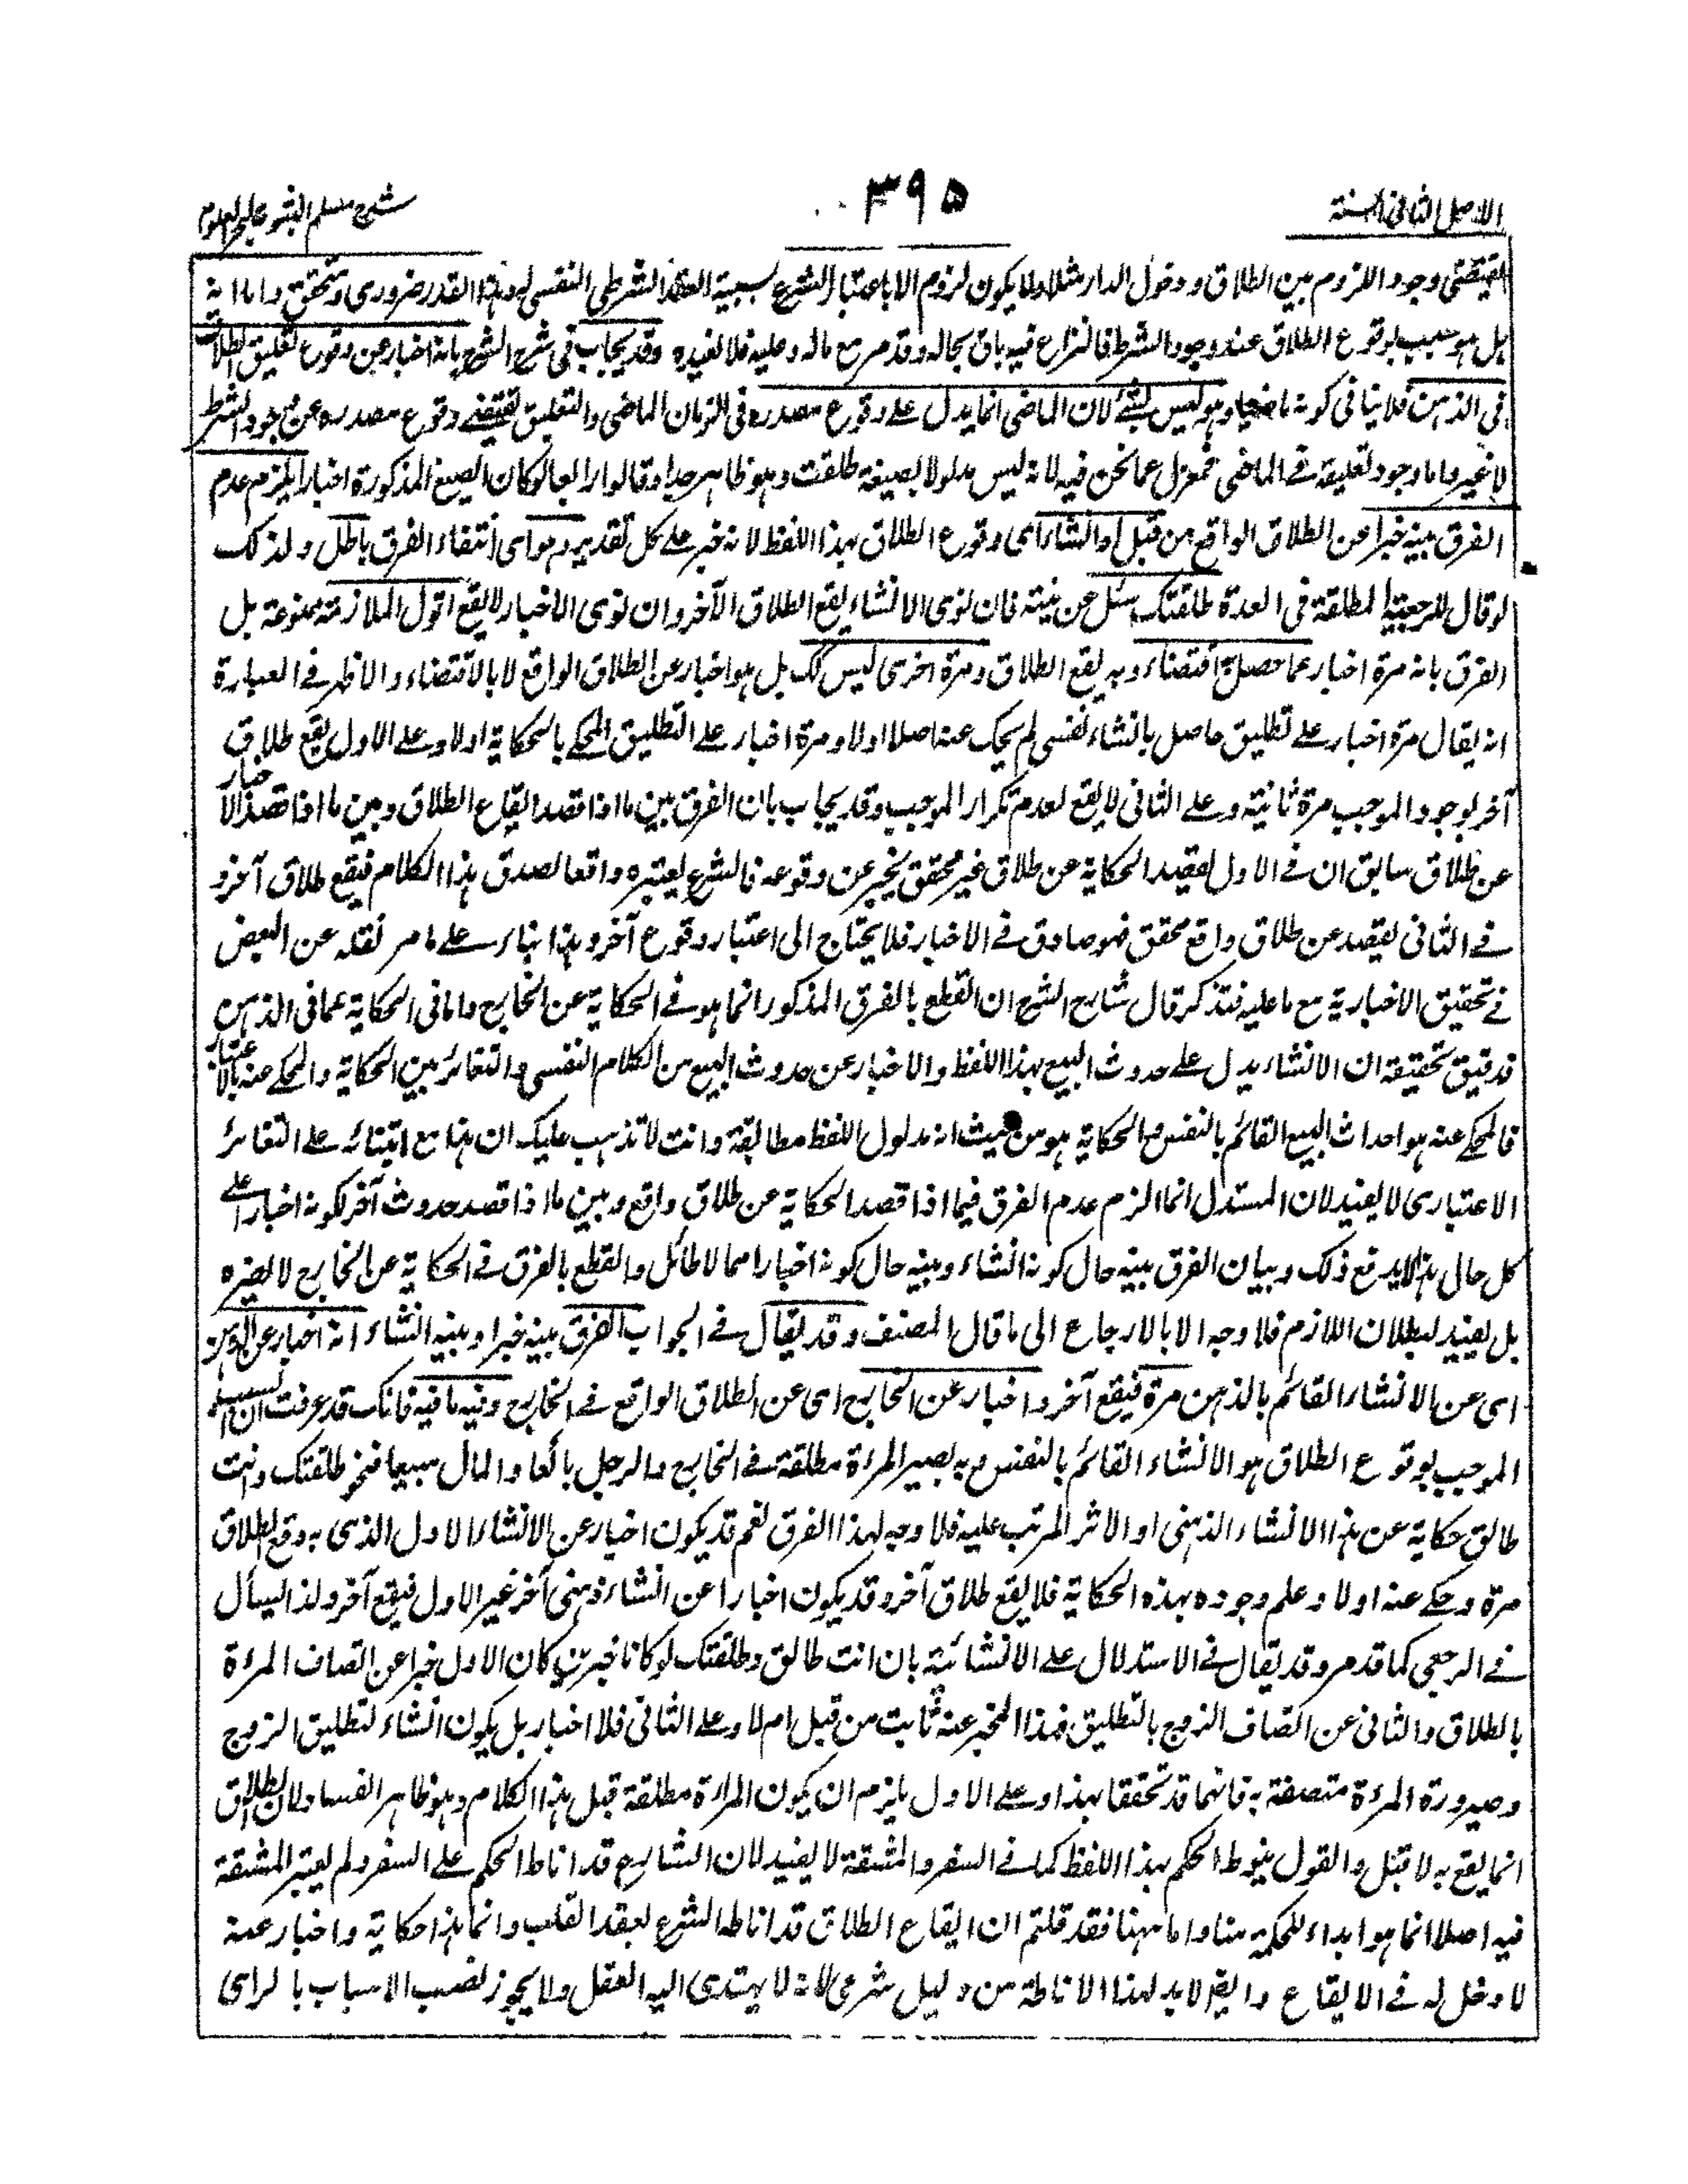 الاصل الثانی السنة
۳۹۵
شرح مسلم الثبوت لبحر العلوم
یقتضی وجود اللزوم بین الطلاق ودخول الدار مثلا ولا یکون لزوم الا باعتبار الشرع لسببیة العقد الشرطی النفسی له وهذا القدر ضروری ومتحقق واما انه
بل هو سبب لوقوع الطلاق عند وجود الشرط فالنزاع فیه باق بحاله وقد مر مع ماله وعلیه فلا نفیده وقد یجاب فی شرح الشرح بانه اخبار عن وقوع تعلیق الطلاق
فی الذهن فلا ینافی کونه ماضیا وهو لیس بشئ لان الماضی انما یدل علی وقوع مصدره فی الزمان الماضی والتعلیق یقتضی وقوع مصدره عن وجود الشرط
لا غیر واما وجود تعلیقه فی الماضی فبمعزل عما نحن فیه لانه لیس مدلولا لصیغة طلقت وهو ظاهر جدا وقالوا رابعا لو کان الصیغ المذکورة اخبارا یلزم عدم
الفرق بینه خبرا عن الطلاق الواقع من قبل او انشاء ای وقوع الطلاق بهذا اللفظ لانه خبر علی کل تقدیر وهو ای انتفاء الفرق باطل ولذلک
لو قال للرجعیة المطلقة فی العدة طلقتک سئل عن نیته فان نوی الانشاء یقع الطلاق الآخر وان نوی الاخبار لا یقع اقول الملازمة ممنوعة بل
الفرق بانه مرة اخبار عما حصل اقتضاء وبه یقع الطلاق ومرة اخری لیس کک بل هو اخبار عن الطلاق الواقع لا بالاقتضاء والاظهر فی العبارة
انه یقال مرة اخبار علی تطلیق حاصل بانشاء نفسی لم یحک عنه اصلا اولا ومرة اخبار علی التطلیق المحکی بالحکایة اولا وعلی الاول یقع طلاق
آخر لوجود الموجب مرة ثانیة وعلی الثانی لا یقع لعدم تکرار الموجب وقد یجاب بان الفرق بین ما اذا قصد ایقاع الطلاق وبین ما اذا قصد الاخبار
عن طلاق سابق ان فی الاول یقصد الحکایة عن طلاق غیر محقق یخبر عن وقوعه فالشرع یعتبره واقعا لصدق هذا الکلام فیقع طلاق آخر و
فی الثانی یقصد عن طلاق واقع محقق فهو صادق فی الاخبار فلا یحتاج الی اعتبار وقوع آخر وهذا بناء علی ما مر نقله عن البعض
فی تحقیق الاخباریة مع ما علیه فتذکر قال شارح الشرح ان القطع بالفرق المذکور انما هو فی الحکایة عن الخارج واما فی الحکایة عما فی الذهن
فدقیق تحقیقه ان الانشاء یدل علی حدوث البیع بهذا اللفظ والاخبار عن حدوث البیع من الکلام النفسی والتغائر بین الحکایة والمحکی عنه بالاعتبار
فالمحکی عنه هو احداث البیع القائم بالنفس والحکایة هو من حیث انه مدلول اللفظ مطابقة وانت لا تذهب علیک ان هذا مع ابتنائه علی التغائر
الاعتباری لا یفید لان المستدل انما الزم عدم الفرق فیما اذا قصد الحکایة عن طلاق واقع وبین ما اذا قصد حدوث آخر لکونه اخبارا علی
کل حال هذا لا یدفع ذلک وبیان الفرق بینه حال کونه انشاء وبینه حال کونه اخبارا مما لا طائل والقطع بالفرق فی الحکایة عن الخارج لا یضره
بل یفید لبطلان اللازم فلا وجه الا بالارجاع الی ما قال المصنف وقد یقال فی الجواب الفرق بینه خبرا وبینه انشاء انه اخبار عن الذهن
ای عن الانشاء القائم بالذهن مرة فیقع آخر واخبار عن الخارج ای عن الطلاق الواقع فی الخارج وفیه ما فیه فانک قد عرفت ان السبب
الموجب لوقوع الطلاق هو الانشاء القائم بالنفس وبه یصیر المرءة مطلقة فی الخارج والرجل بائعا والمال مبیعا فنحو طلقتک وانت
طالق حکایة عن هذا الانشاء الذهنی او الاثر المرتب علیه فلا وجه لهذا الفرق نعم قد یکون اخبار عن الانشاء الاول الذی به وقع الطلاق
مرة وحکی عنه اولا وعلم وجوده بهذه الحکایة فلا یقع طلاق آخر وقد یکون اخبارا عن انشاء ذهنی آخر غیر الاول فیقع آخر ولذا یسأل
فی الرجعی کما قد مر وقد یقال فی الاستدلال علی الانشائیة بان انت طالق وطلقتک لو کانا خبرین کان الاول خبرا عن اتصاف المرءة
بالطلاق والثانی عن اتصاف الزوج بالتطلیق فهذا المخبر عنه ثابت من قبل ام لا وعلی الثانی فلا اخبار بل یکون انشاء لتطلیق الزوج
وصیرورة المرءة متصفة به فانهما قد تحققا بهذا وعلی الاول یلزم ان یکون المرأة مطلقة قبل هذا الکلام وهو ظاهر الفساد لان الطلاق
انما یقع به لا قبل والقول بنوط الحکم بهذا اللفظ کما فی السفر والمشقة لا یفید لان الشارع قد اناط الحکم علی السفر ولم یعتبر المشقة
فیه اصلا انما هو ابداء للحکمة منا واما ههنا فقد قلتم ان ایقاع الطلاق قد اناطه الشرع بعقد القلب وانما هذا حکایة واخبار عنه
لا دخل له فی الایقاع وایضا لا بد لهذا الاناطة من دلیل شرعی لانه لا یهتدی الیه العقل ولا یجوز نصب الاسباب بالرای